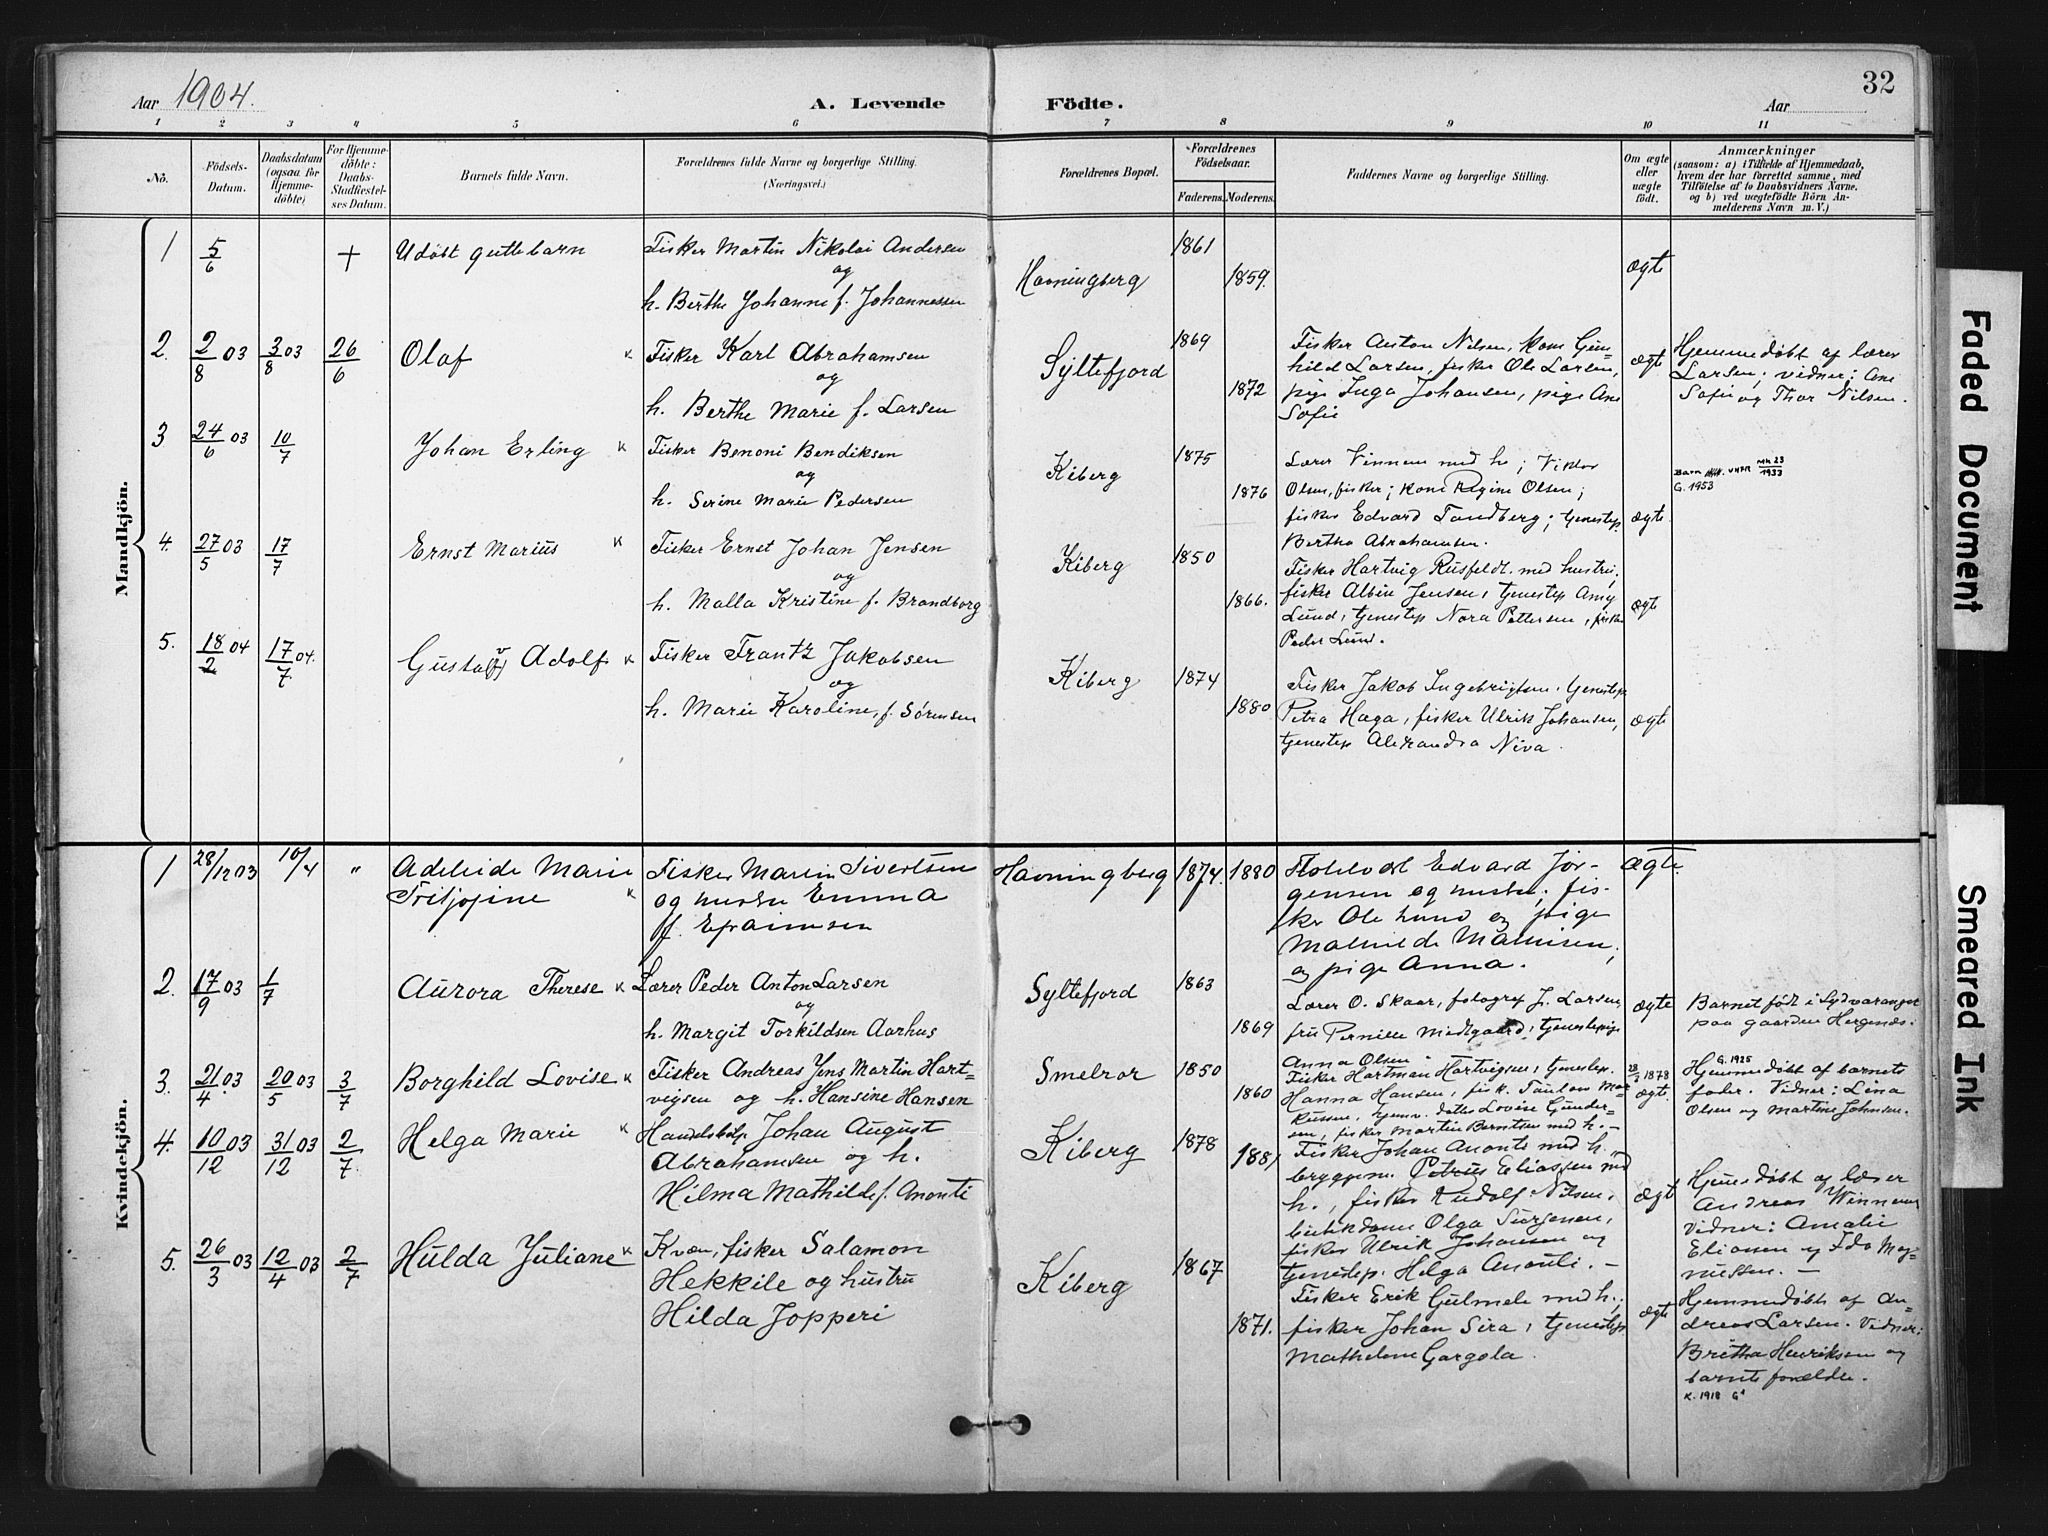 Aar 1904.
A. Levende
Födte.
Aar
32
1 2 3 4 5 6 7 8 9 10 11
No.
Födsels-
Datum.
Daabsdatum
(ogsaa for
Hjemme-
döbte)
For Hjemme-
döbte:
Daabs-
Stadfæstel-
ses Datum.
Barnets fulde Navn.
Forældrenes fulde Navne og borgerlige Stilling.
(Næringsvei.)
Forældrenes Bopæl.
Forældrenes
Födselsaar.
Faderens. Moderens.
Faddernes Navne og borgerlige Stilling.
Om ægte
eller
uægte
födt.
Anmærkninger
(saasom: a) i Tilfælde af Hjemmedaab,
hvem der har forrettet samme, med
Tilföielse af to Daabsvidners Navne.
og b) ved uægtefödte Börn An-
melderens Navn m. V.)
Mandkjön.
1 5/6 + Udöbt guttebarn
Fisker Martin Nikolai Andersen
og
h. Berthe Johanne f. Johannessen
Havningberg
1861
1859.
ægte
2. 2/8 03 3/8 03 26/6 Olaf k
Fisker Karl Abrahamsen
og
h. Berthe Marie f. Larsen
Syltefjord
1869
1872
Fisker Anton Nilsen, kone Gun=
hild Larsen, fisker Ole Larsen,
pige Inga Johansen, pige Ane
Sofie
ægte
Hjemmedöbt af lærer
Larsen; vidner: Ane
Sofie og Thor Nilsen.
3 24/6 03 10/7 Johan Erling k
Fisker Benoni Bendiksen
og
h. Serine Marie Pedersen
Kiberg
1875
1876
Lærer Vinnem med h; Viktor
Olsen, fisker; kone Regine Olsen;
fisker Edvard Tandberg; tjenestep.
Bertha Abrahamsen.
ægte
Barn VHFR mk 23/1933
G. 1953
4. 27/5 03 17/7 Ernst Marius k
Fisker Ernst Johan Jensen
og
h. Malla Kristine f. Brandborg
Kiberg
1850
1866.
Fisker Hartvig Rusfeldt med hustru,
fisker Albin Jensen, tjenestep Amy
Lund, tjenestep Nora Pettersen, fisker
Peder Lund.
ægte
5. 18/2 04 17/7 04. Gustav(f) Adolf k
Fisker Frantz Jakobsen
og
h. Marie Karoline, f. Sörensen
Kiberg
1874
1880
Fisker Jakob Ingebrigtsen, tjenestep.
Petra Haga, fisker Ulrik Johansen,
tjenestep Alexandra Niva.
ægte
Kvindekjön.
1 28/12 03 10/4 " Adeleide Marie
k
Fisker Martin Sivertsen
og hustru Emma
f. Efraimsen
Havningberg 1874. 1880
Edvard Jör-
gensen og hustru; fis-
ker Ole Lund og pige
og pige Anna.
Ægte.
2. 17/9 03 1/7 Aurora Therese k
Lærer Peder Anton Larsen
og
h. Margit Torkildsen Aarhus
Syltefjord
1863
1869
Lærer O. Skaar, fotograf J. Larsen,
fru Pernille Medlgaard, tjenestepige
Anna Olsen
ægte
Barnet födt i Sydvaranger
paa gaarden Hergenæs.
3. 21/4 03 20/5 03 3/7 Borghild Lovise k
Fisker Andreas Jens Martin Hart=
vigsen og h. Hansine Hansen
Smelror
1850
1860
Fisker Hartman Hartvigsen, tjenestep.
Hanna Hansen, fisk. Paulow Mar-
kussen, hjemv. datter Lovise Gunder-
sen, fisker Martin Berntsen med h. –
1878
ægte.
G. 1925
Hjemmedöbt af barnets
fader. Vidner: Lina
Olsen og Martine Johnsen.
4. 10/12 03 31/12 03 2/7 Helga Marie k
Handelsbetj. Johan August
Abrahamsen og h.
Hilma Mathilde f. Anonti
Kiberg
1878
1881
Fisker Johan Anonti med h.,
bryggem. Petrus Eliassen med
h., fisker Rudolf Nilsen,
butikdame Olga Jörgensen,
fisker Ulrik Johansen og
tjenestep. Helga Anonti. –
ægte
Hjemdöbt af lærer
Andreas Winnem
Vidner: Amalie
Eliassen og Ida Mag-
nussen. –
5. 26/3 03 12/4 03 2/7 Hulda Juliane k
Kvæn, fisker Salamon
Hekkile og hustru
Hilda Jopperi
Kiberg
1867
1871.
Fisker Erik Gulmele med h.;
fisker Johan Sira, tjenestep
Mathelene Gargola.
ægte
Hjemmedöbt af An=
dreas Larsen. Vidner:
Britha Henriksen og
barnets forældre.
K. 1918 G^1
Faded Document
Smeared Ink